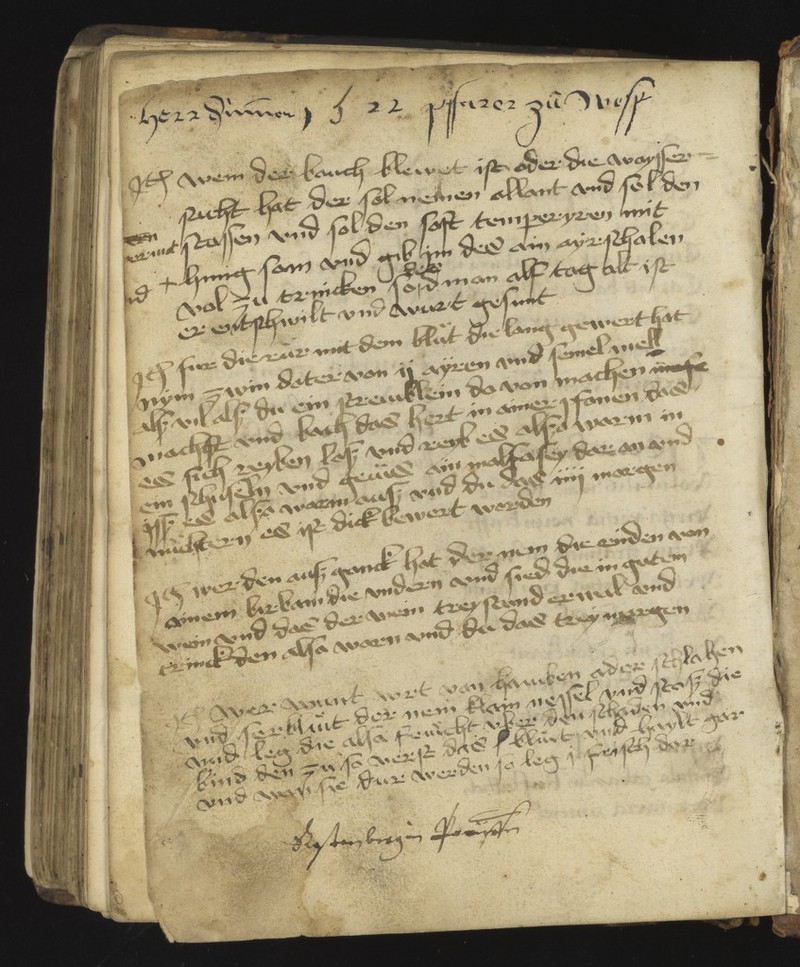 Herr 1522 pfarer zu
Jtem wem der bauch blewet ist oder die waysser
sucht hat der sol nemen allant vnd sol den
stossen vnd sol den soft temperyren mit
hung sam vnd gib im des ain ayrschalen
vol zu trincken so der man alß tag alt ist
er entschwilt vnd wurt gesunt
Jtem fur die rür mit dem blüt die lang gewert hat
nym zwin doter von ij ayren vnd semel mell
alß vil alß du ein streublein do von machen
machst vnd bach das hert in ainer pfanen das
es sich reyben loß vnd reyb es alßo warm in
ein schuseln vnd geuß ain malfasey dar an vnd
yß es alßo warm auß vnd du das iiij morgen
nüchtern es ist dick bewert worden
Jtem wer den außganck hat der nem die rinden von
ainem birbam die vndern vnd sied die in gutem
wein vnd das der wein trey stund erwal vnd
trinck den alßo warm vnd du das trey morgen
Jtem wer wunt wrt von hauben oder schlahen
vnd serblüt der nem klain nessel vnd stoß die
vnd leg die alßo feucht vber den schaden vnd
bind den zu so verst das blüt vnd haylt gar
vnd wan sie dur werden so leg frisch dar